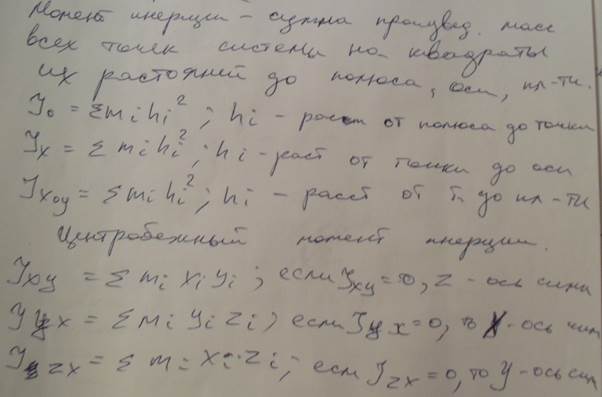 Момент инерции – сумма произвед. масс
всех точек системы на квадраты
их растояний до полюса, оси, пл-ти.
J₀ = Σmᵢhᵢ²; hᵢ – расст от полюса до точки
Jₓ = Σmᵢhᵢ²; hᵢ – раст от точки до оси
Jxoy = Σmᵢhᵢ²; hᵢ – расст от т. до пл-ти
Центробежный момент инерции.
Jxy = Σ mᵢ xᵢ yᵢ; если Jxy = 0, z – ось сим
Jyx = Σ mᵢ yᵢ zᵢ; если Jyx = 0, то – ось сим
Jzx = Σ mᵢ xᵢ zᵢ; если Jzx = 0, то y – ось сим